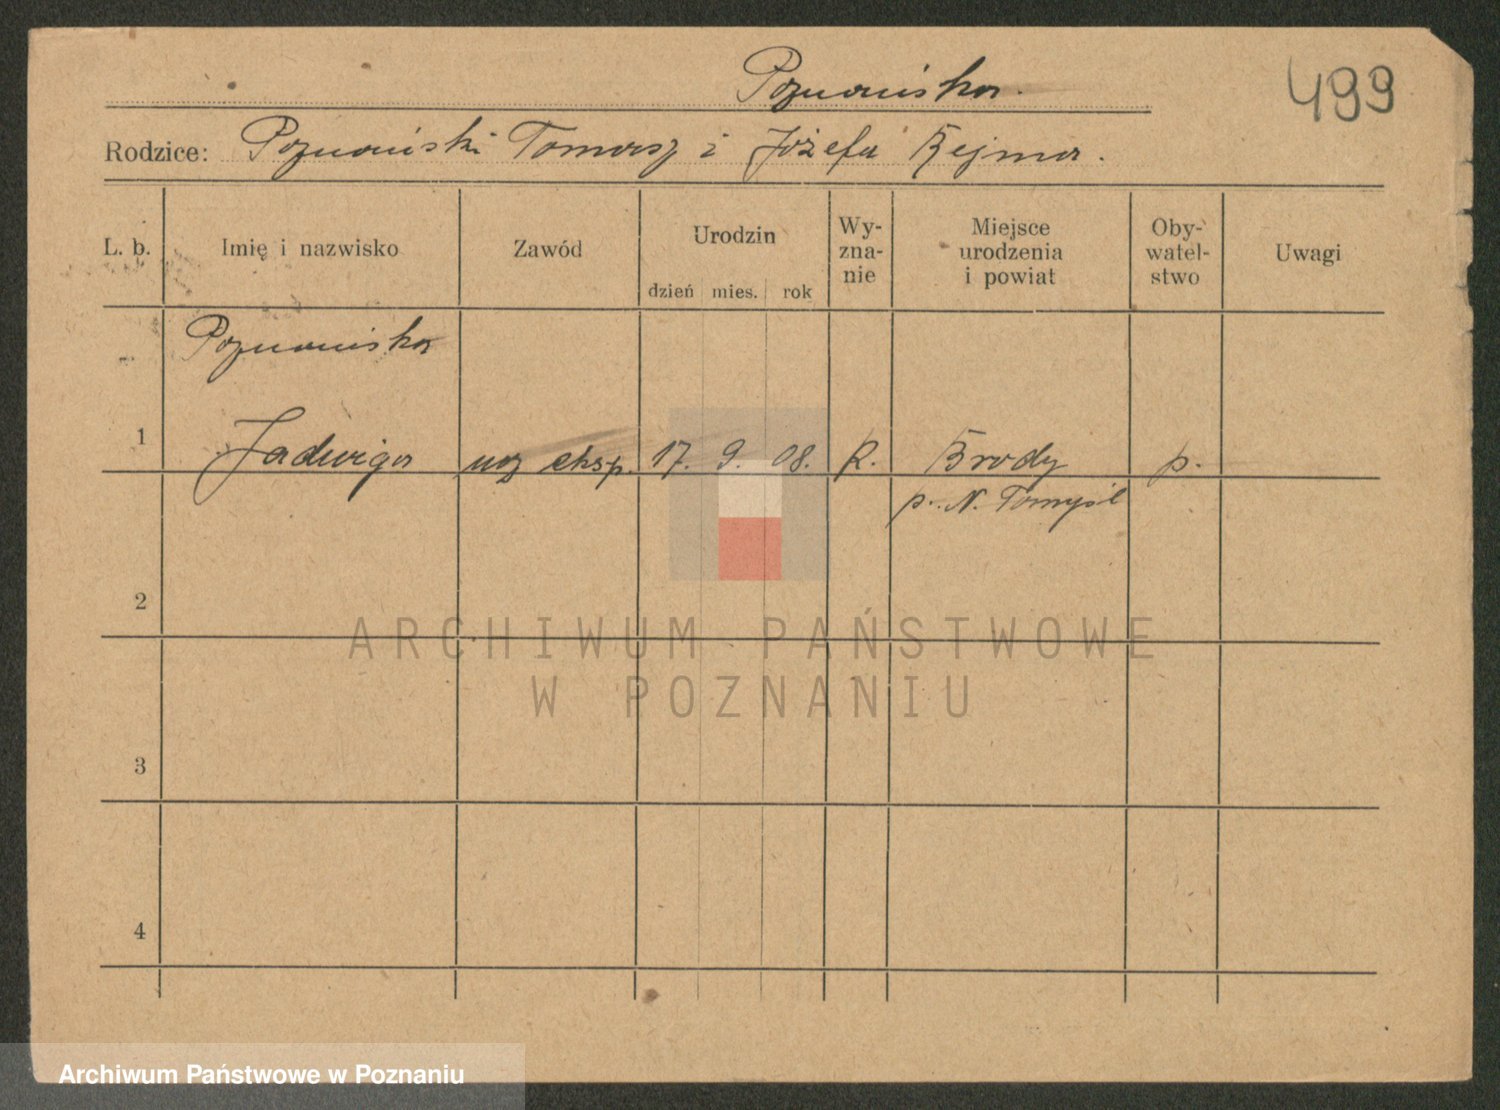 Poznańska.
499
Rodzice: Poznański Tomasz i Józefa Bejma.
L. b.
Imię i nazwisko
Zawód
Urodzin
dzień mies. rok
Wy-
zna-
nie
Miejsce
urodzenia
i powiat
Oby-
watel-
stwo
Uwagi
Poznańska
1 Jadwiga eksp. 17. 9. 08. R. Brody p.
p. N. Tomyśl
2
3
4
ARCHIWUM PAŃSTWOWE
W POZNANIU
Archiwum Państwowe w Poznaniu